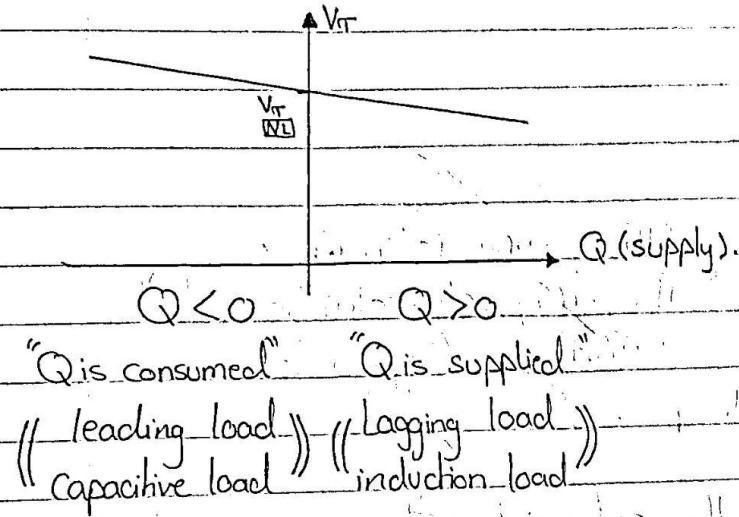 VT
VT
NL
Q (supply).
Q<0 Q>0
"Q is consumed" "Q is supplied"
(( leading load )) (( Lagging load ))
capacitive load induction load